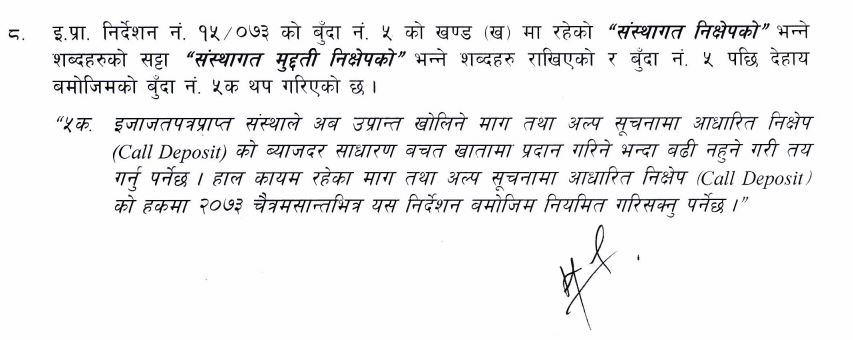 ८. इ.प्रा. निर्देशन नं. १५/०७३ को बुँदा नं. ५ को खण्ड (ख) मा रहेको “संस्थागत निक्षेपको” भन्ने
शब्दहरुको सट्टा “संस्थागत मुद्दती निक्षेपको” भन्ने शब्दहरु राखिएको र बुँदा नं. ५ पछि देहाय
बमोजिमको बुँदा नं. ५क थप गरिएको छ ।
“५क. इजाजतपत्रप्राप्त संस्थाले अब उप्रान्त खोलिने माग तथा अल्प सूचनामा आधारित निक्षेप
(Call Deposit) को ब्याजदर साधारण बचत खातामा प्रदान गरिने भन्दा बढी नहुने गरी तय
गर्नु पर्नेछ । हाल कायम रहेका माग तथा अल्प सूचनामा आधारित निक्षेप (Call Deposit)
को हकमा २०७३ चैत्रमसान्तभित्र यस निर्देशन बमोजिम नियमित गरिसक्नु पर्नेछ ।”